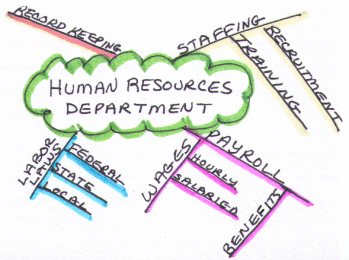 RECORD KEEPING
STAFFING
TRAINING
RECRUITMENT
HUMAN RESOURCES
DEPARTMENT
LABOR
LAWS
FEDERAL
STATE
LOCAL
WAGES
HOURLY
SALARIED
PAYROLL
BENEFITS